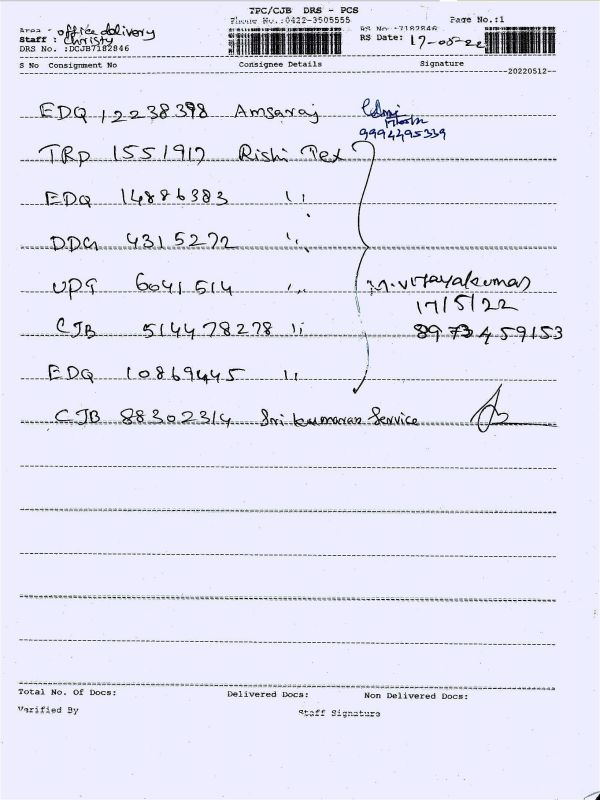 TPC/CJB DRS - PCS
Phone No.:0422-3505555 Page No.:1
Area : office delivery RS No :7182846
Staff : Christy RS Date: 17-05-22
DRS No. :DCJB7182846
S No Consignment No Consignee Details Signature
20220512
EDQ 12238398 Amsaraj
9994495339
TRP 1551917 Rishi Tex
EDQ 14886383 ,,
DDG 4315272 ,,
UPG 6041514 ,, M.Vijayakumar
17/5/22
CJB 514478278 ,, 8973459153
EDQ 10869445 ,,
CJB 88302314 Sri kumaran Service
Total No. Of Docs: Delivered Docs: Non Delivered Docs:
Verified By Staff Signature